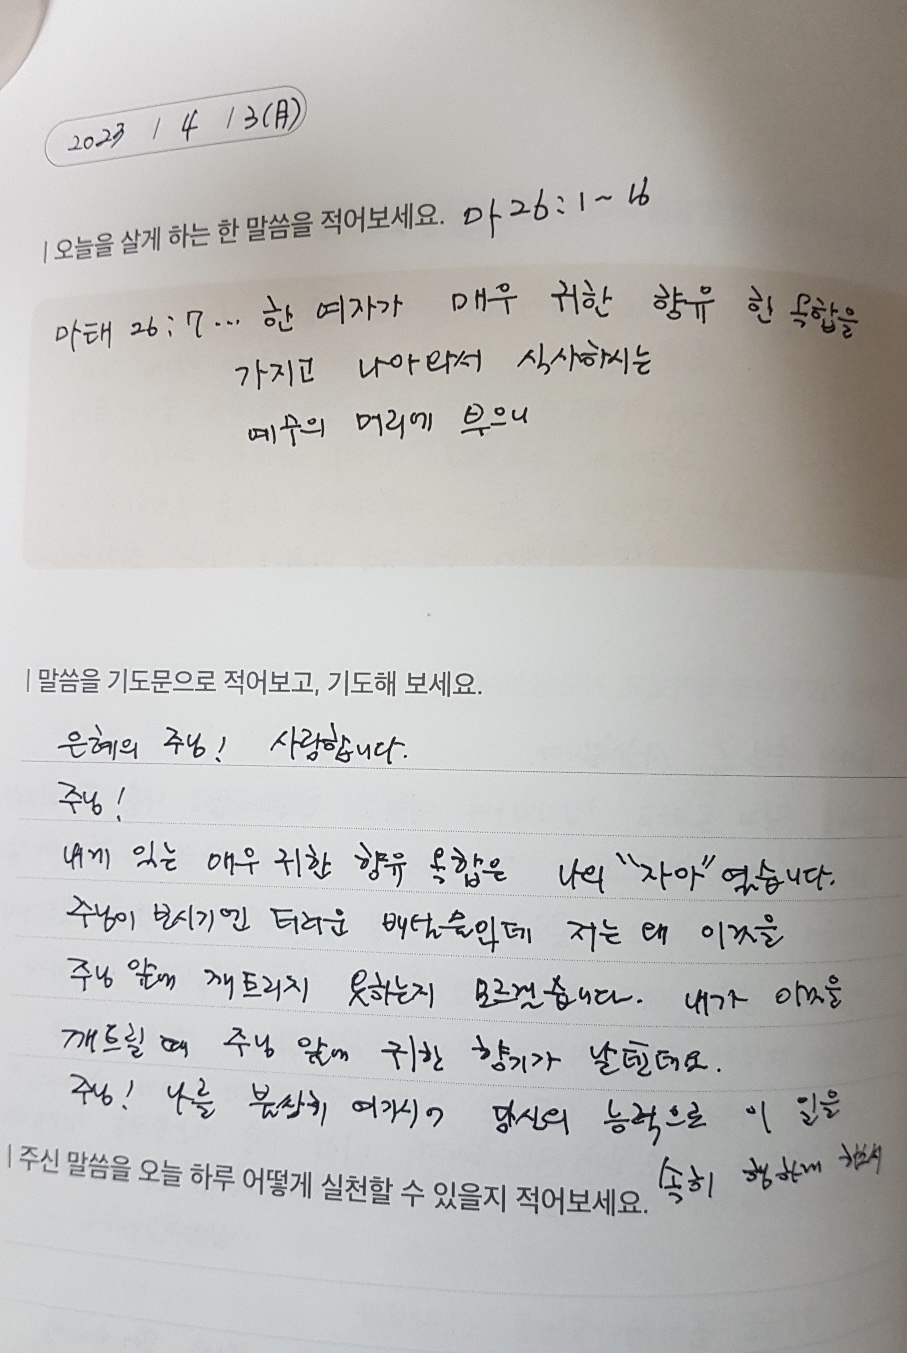 2023 / 4 / 3(月)
| 오늘을 살게 하는 한 말씀을 적어보세요. 마 26:1~16
마태 26:7... 한 여자가 매우 귀한 향유 한 옥합을
가지고 나아와서 식사하시는
예수의 머리에 부으니
| 말씀을 기도문으로 적어보고, 기도해 보세요.
은혜의 주님! 사랑합니다.
주님!
내게 있는 매우 귀한 향유 옥합은 나의 "자아"였습니다.
주님이 보시기엔 더러운 저는 왜 이것을
주님 앞에 깨트리지 못하는지 모르겠습니다. 내가 이것을
깨트릴 때 주님 앞에 귀한 향기가 날텐데요.
주님! 나를 불쌍히 여기시어 당신의 능력으로 이 일을
속히 행하게 하소서
| 주신 말씀을 오늘 하루 어떻게 실천할 수 있을지 적어보세요.